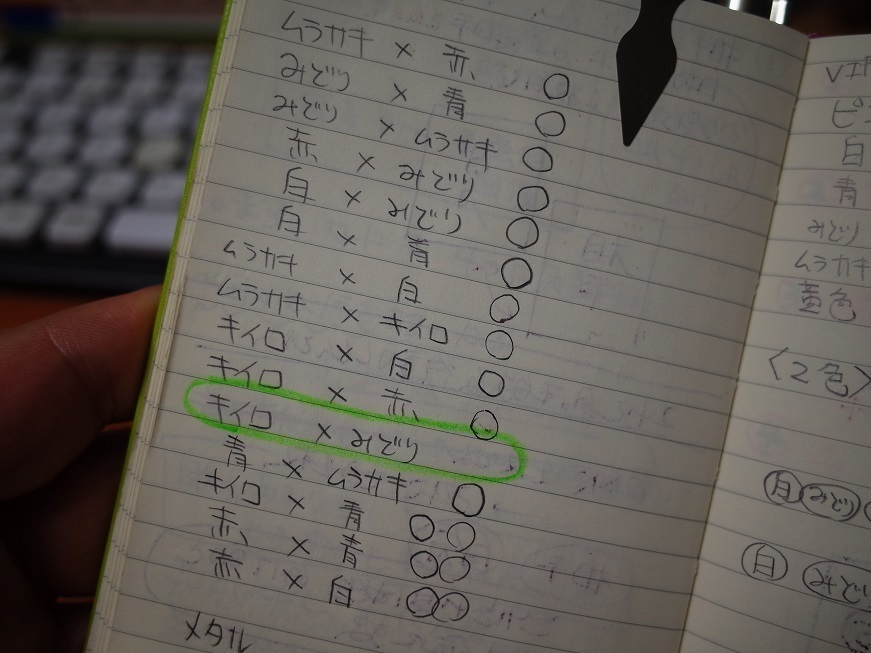 ムラサキ × 赤 ○
みどり × 青 ○
みどり × ムラサキ ○
赤 × みどり ○
白 × みどり ○
白 × 青 ○
ムラサキ × 白 ○
ムラサキ × キイロ ○
キイロ × 白 ○
キイロ × 赤 ○
キイロ × みどり
青 × ムラサキ ○
キイロ × 青 ○○
赤 × 青 ○○
赤 × 白 ○○
メタル
白
青
みどり
ムラサキ
黄色
〈2色〉
白 みどり
白 みどり